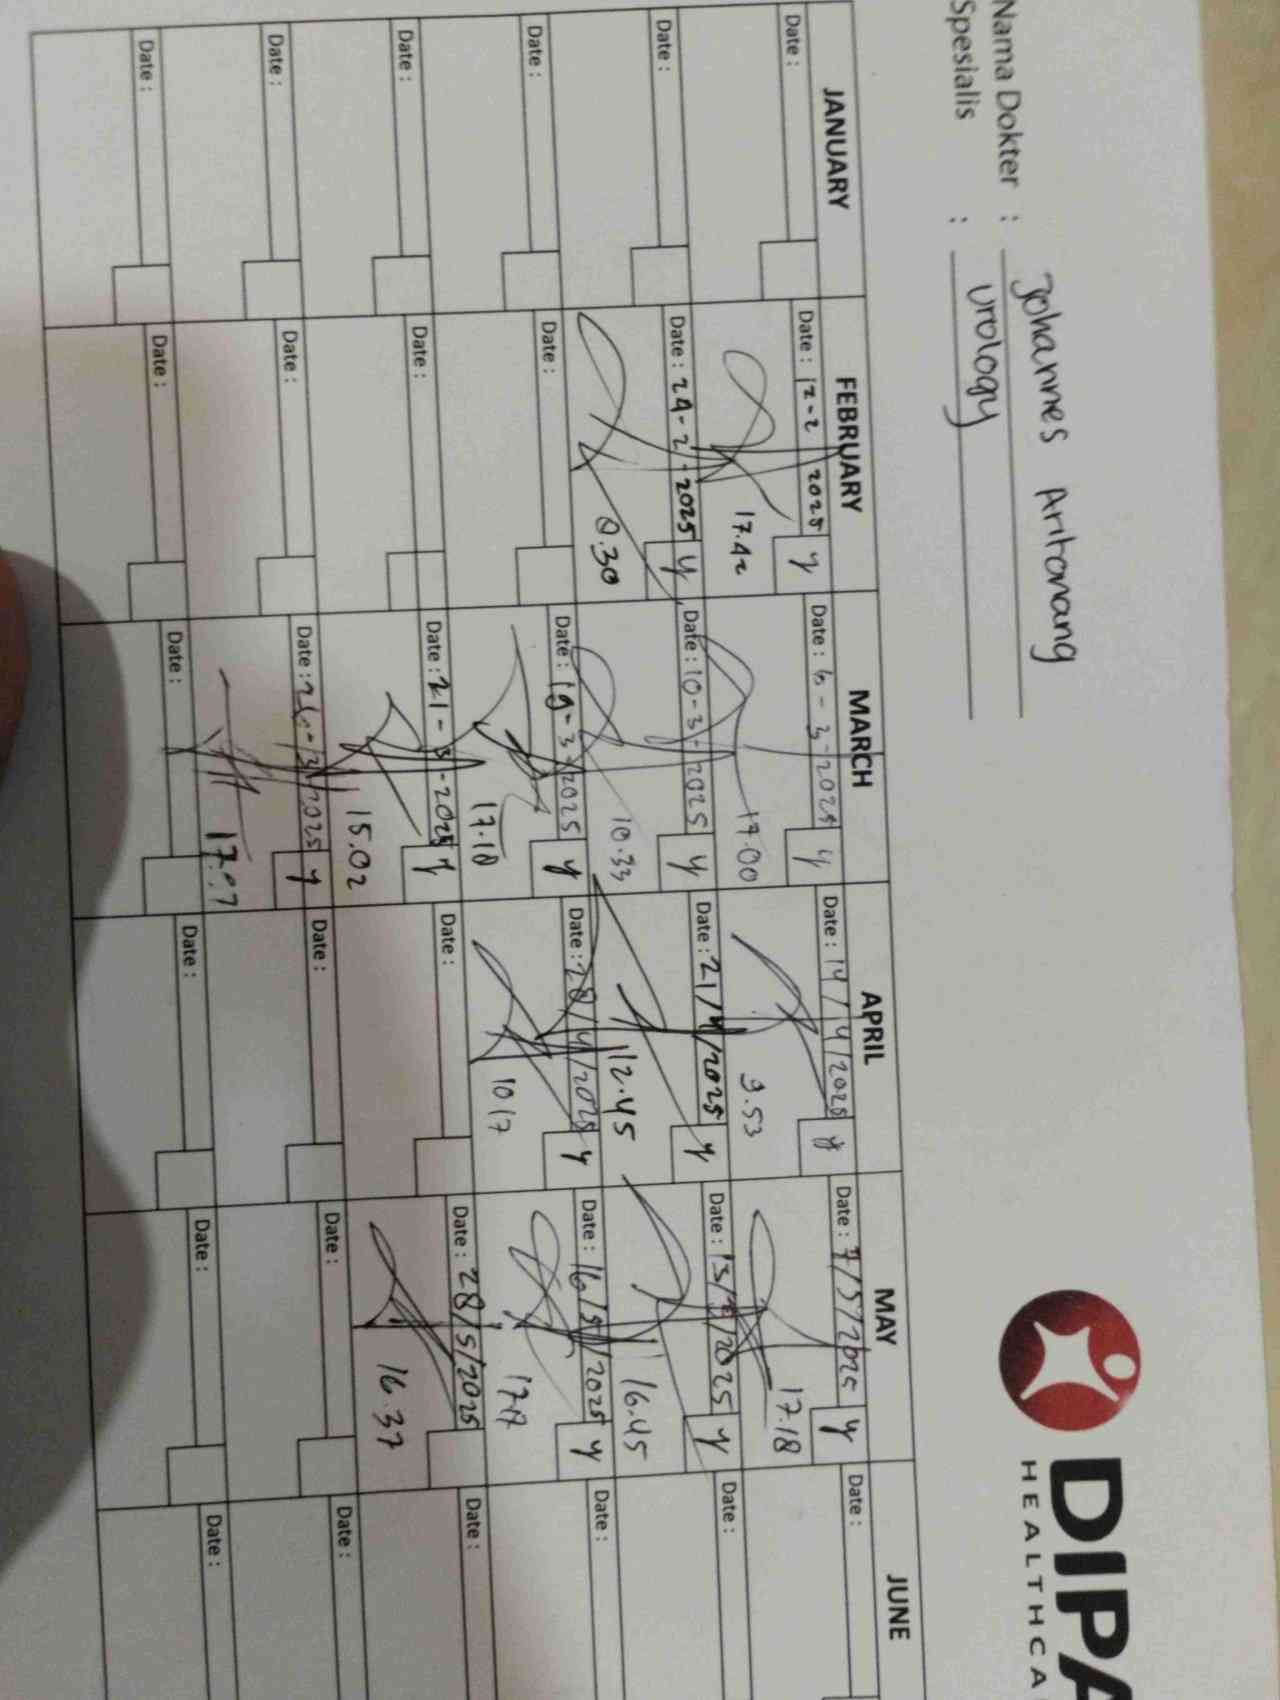 DIPA
HEALTHCA
Nama Dokter : Johannes Aritonang
Spesialis : Urology
JANUARY FEBRUARY MARCH APRIL MAY JUNE
Date : Date : 12-2 2025 y Date : 6-3-2025 y Date : 14/4/2025 y Date : 7/5/2025 y Date :
17.42 17.00 9.53 17.18
Date : Date : 24-2-2025 y Date : 10-3-2025 y Date : 21/4/2025 y Date : 15/5/2025 y Date :
10.33 12.45 16.45
Date : Date : Date : 19-3-2025 y Date : 28/4/2025 y Date : 16/5/2025 y Date :
17.18 1017
Date : Date : Date : 21-3-2025 y Date : Date : 28/5/2025 Date :
15.02 16.37
Date : Date : Date : /3/2025 y Date : Date : Date :
Date : Date : Date : Date : Date : Date :